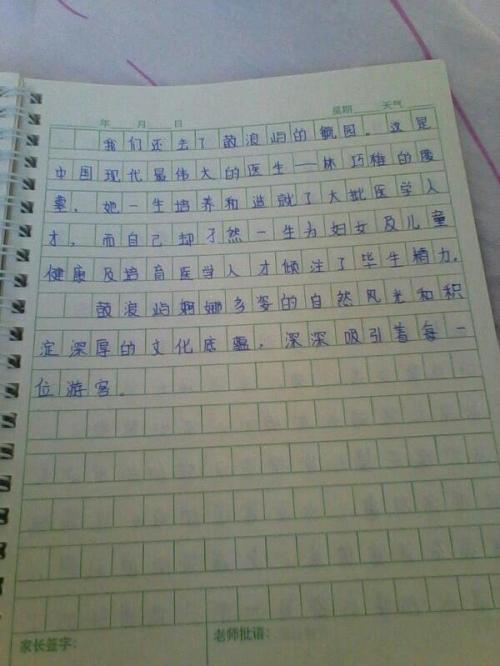 年 月 日 星期 天气
我们还去了鼓浪屿的毓园。这是
中国现代最伟大的医生——林巧稚的陵
墓。她一生培养和造就了大批医学人
才，而自己却孑然一生为妇女及儿童
健康及培育医学人才倾注了毕生精力。
鼓浪屿婀娜多姿的自然风光和积
淀深厚的文化底蕴，深深吸引着每一
位游客。
家长签字： 老师批语：